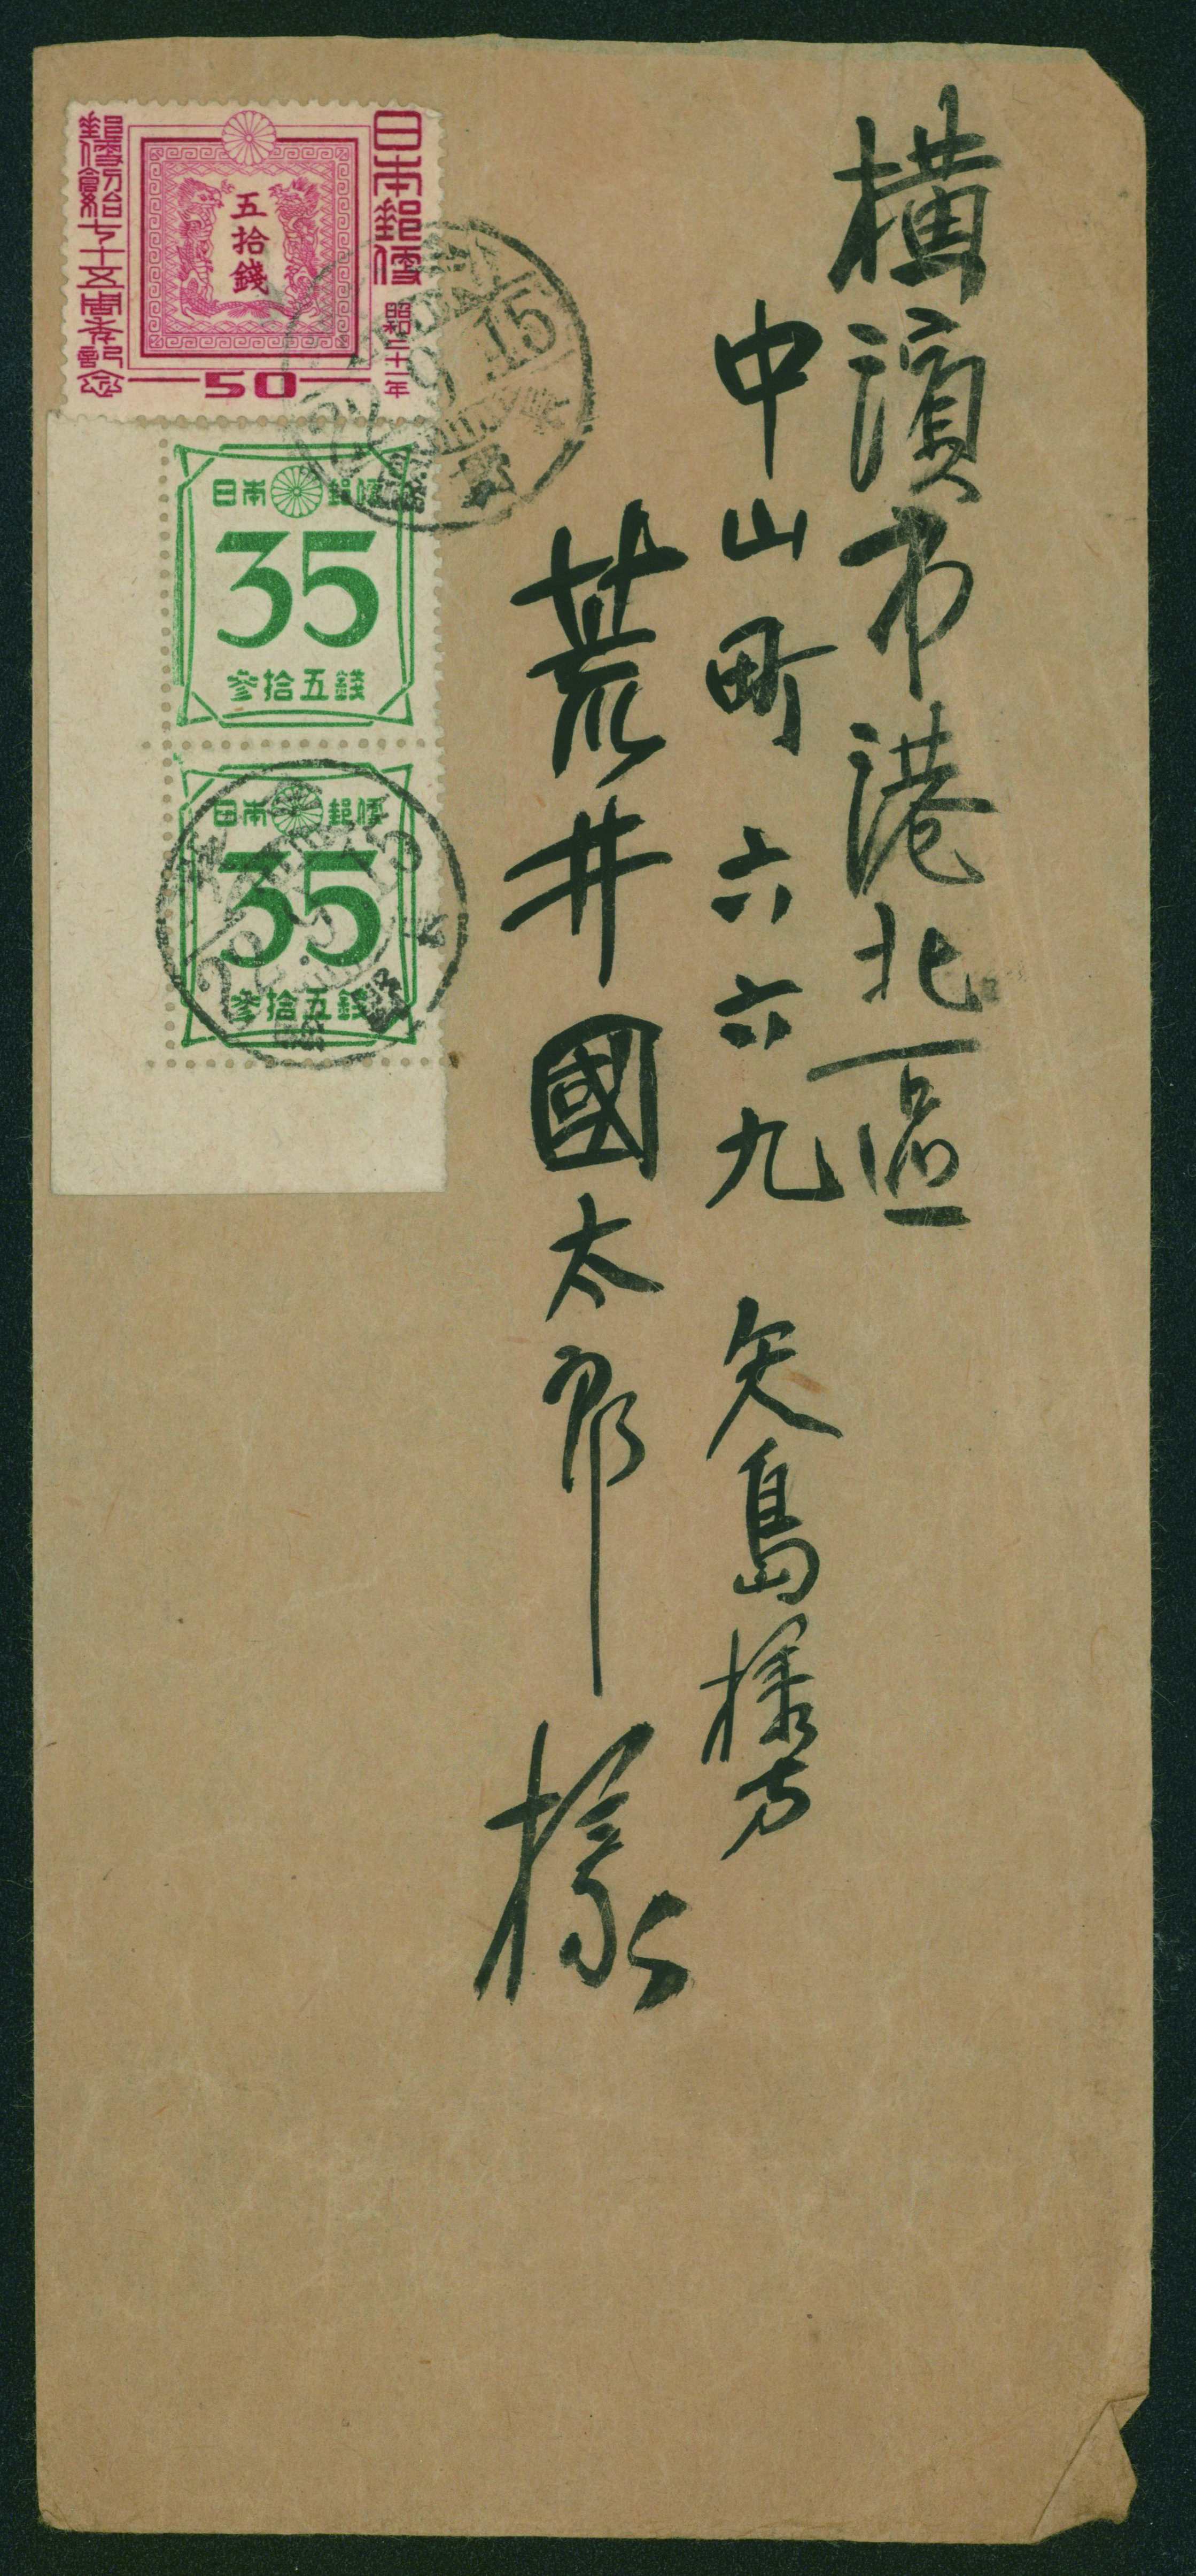 横濱市港北區
中山町六六九 矢島様方
荒井國太郎様
日本郵便
昭和二十一年
五拾錢
郵便創始七十五周年記念
50
日本郵便
35
參拾五錢
日本郵便
35
參拾五錢
15